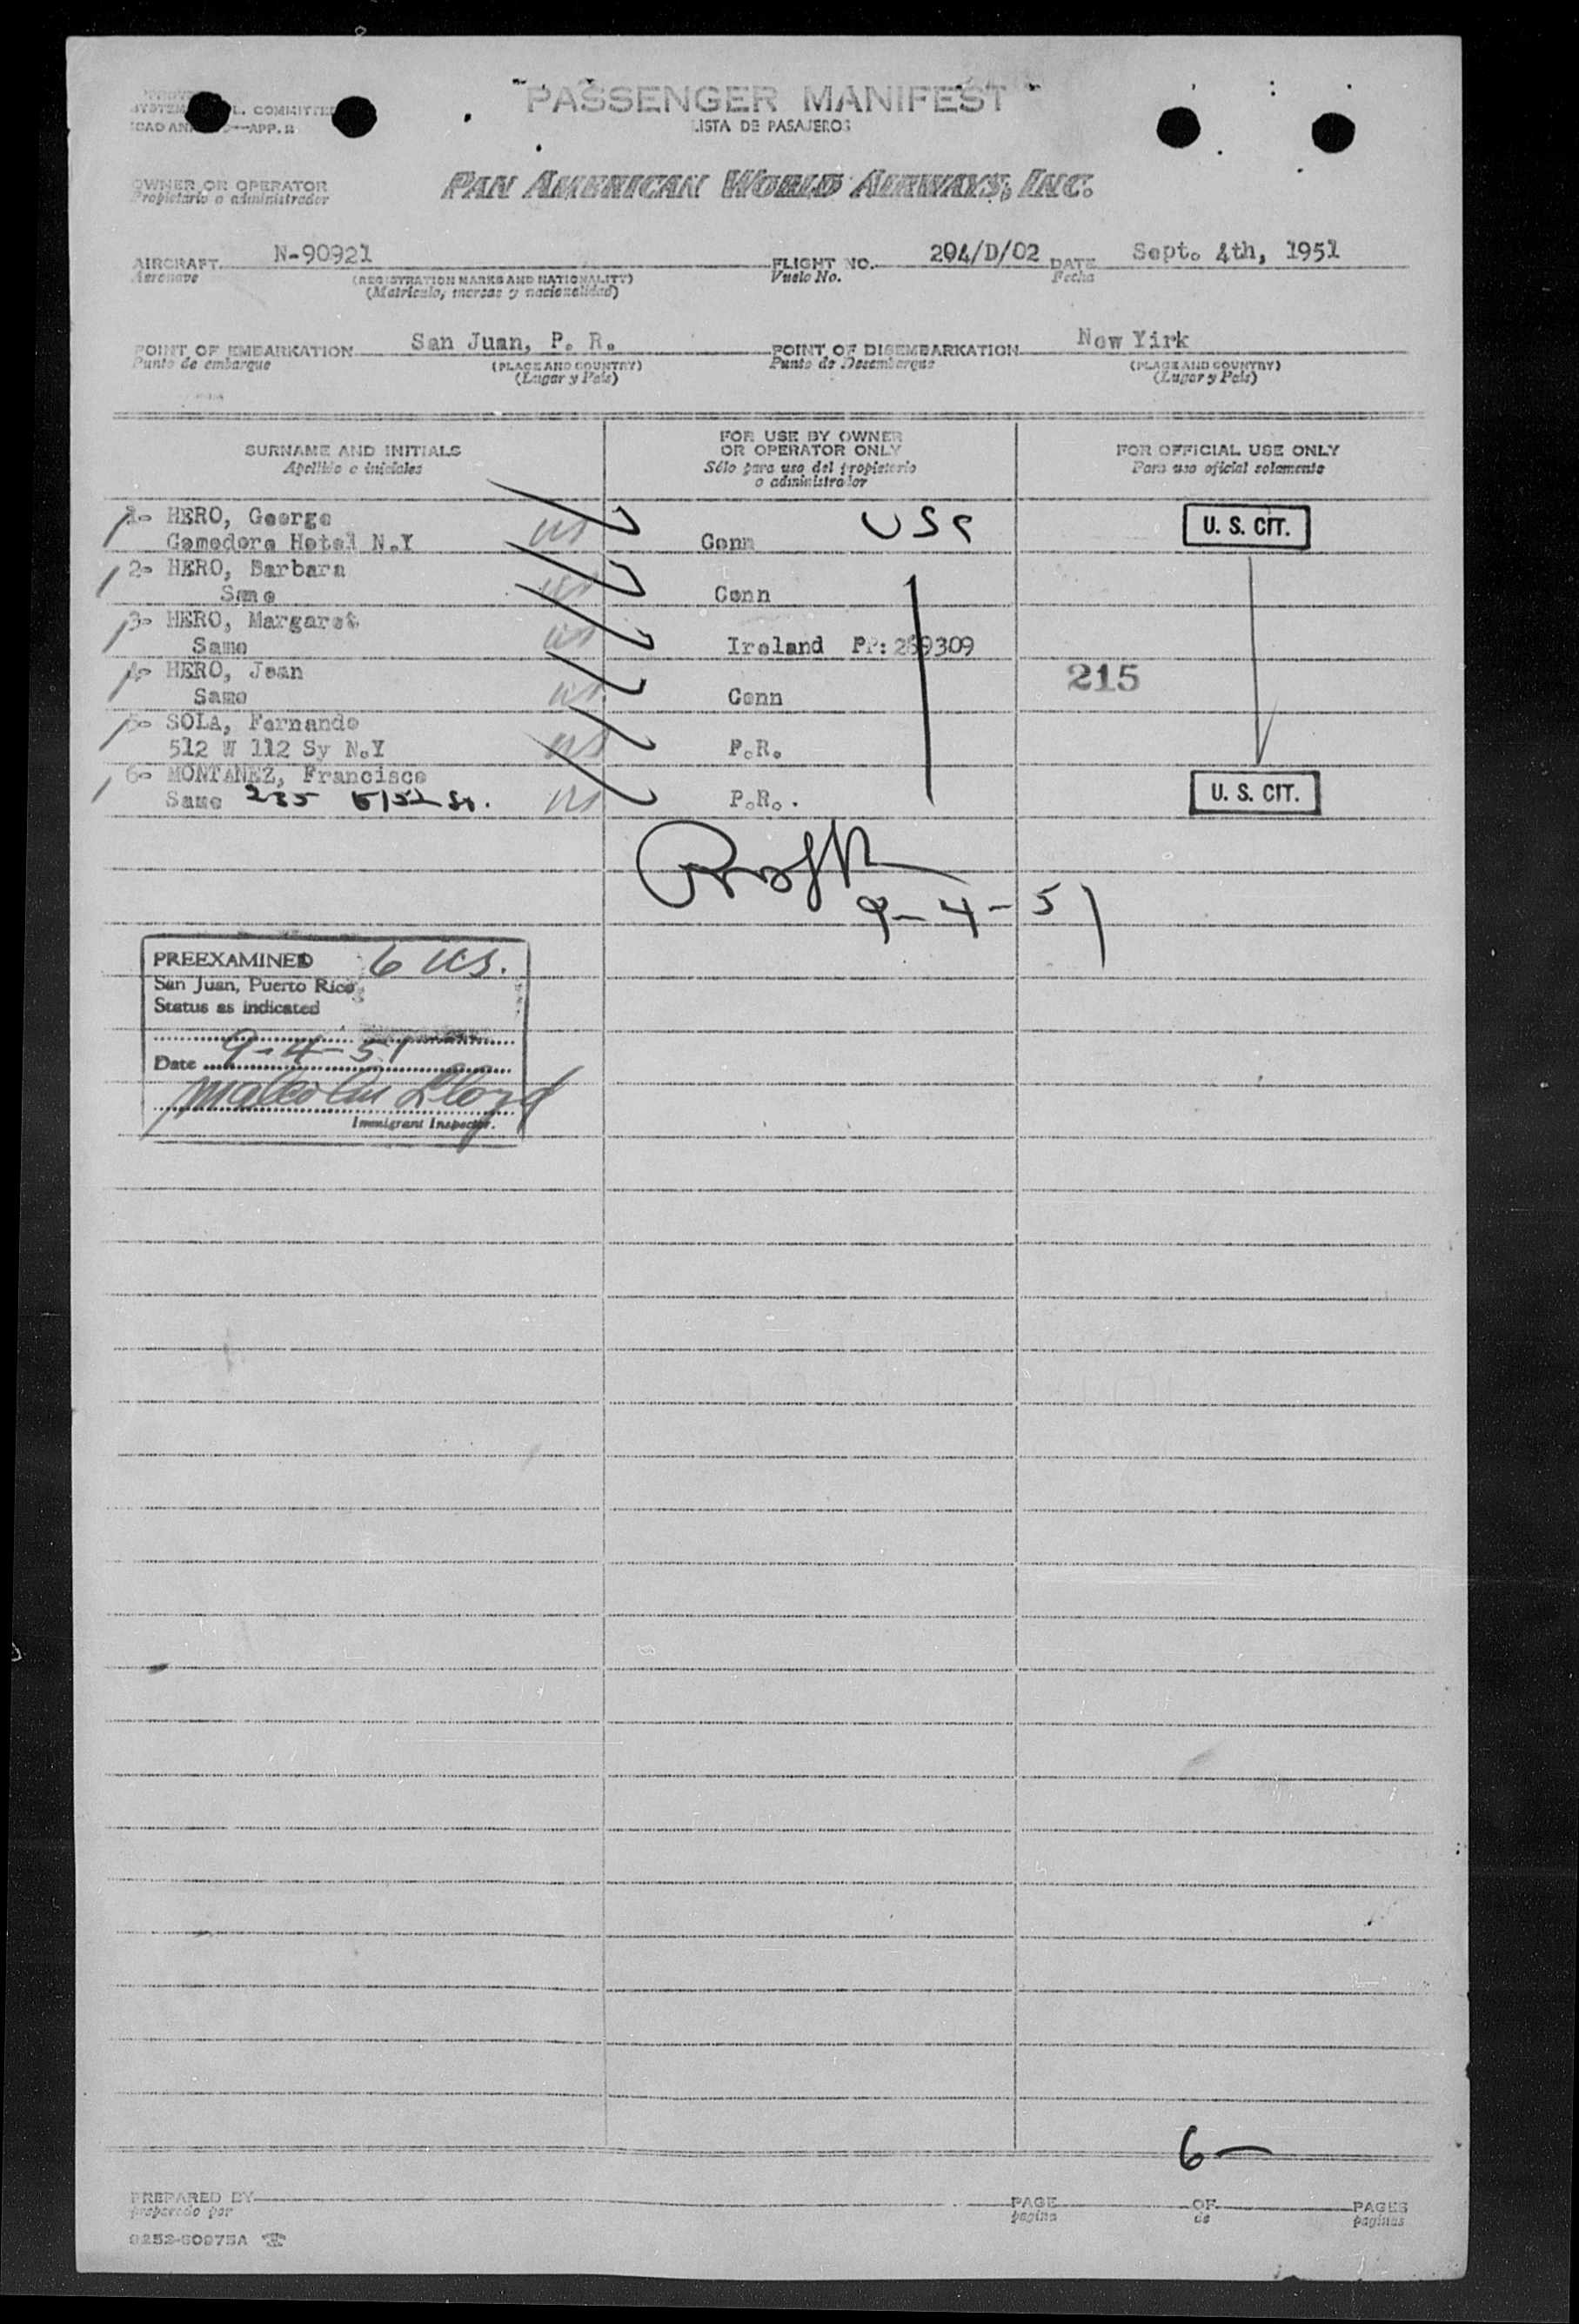 L. COMMITTEE
APP. 2
PASSENGER MANIFEST
LISTA DE PASAJEROS
OWNER OR OPERATOR
Propietario o administrador
PAN AMERICAN WORLD AIRWAYS, INC.
AIRCRAFT N-90921 FLIGHT NO. 294/D/02 DATE Sept. 4th, 1951
Aeronave (REGISTRATION MARKS AND NATIONALITY) Vuelo No. Fecha
(Matricula, marcas y nacionalidad)
POINT OF EMBARKATION San Juan, P. R. POINT OF DISEMBARKATION New Yirk
Punto de embarque (PLACE AND COUNTRY) Punto de Desembarque (PLACE AND COUNTRY)
(Lugar y País) (Lugar y País)
SURNAME AND INITIALS FOR USE BY OWNER OR OPERATOR ONLY FOR OFFICIAL USE ONLY
Apellido e iniciales Sólo para uso del propietario o administrador Para uso oficial solamente
1- HERO, George USC U. S. CIT.
Comodoro Hotel N.Y US Conn
2- HERO, Barbara
Same US Conn
3- HERO, Margaret
Same US Ireland PP: 289309
4- HERO, Jean 215
Same US Conn
5- SOLA, Fernando
512 W 112 Sy N.Y US P.R.
6- MONTANEZ, Francisco
Same 235 E 152 St. US P.R. . U. S. CIT.
9-4-51
PREEXAMINED 6 US.
San Juan, Puerto Rico
Status as indicated
Date 9-4-51
Malcolm Lloyd
Immigrant Inspector.
6
PREPARED BY PAGE OF PAGES
preparado por pagina de paginas